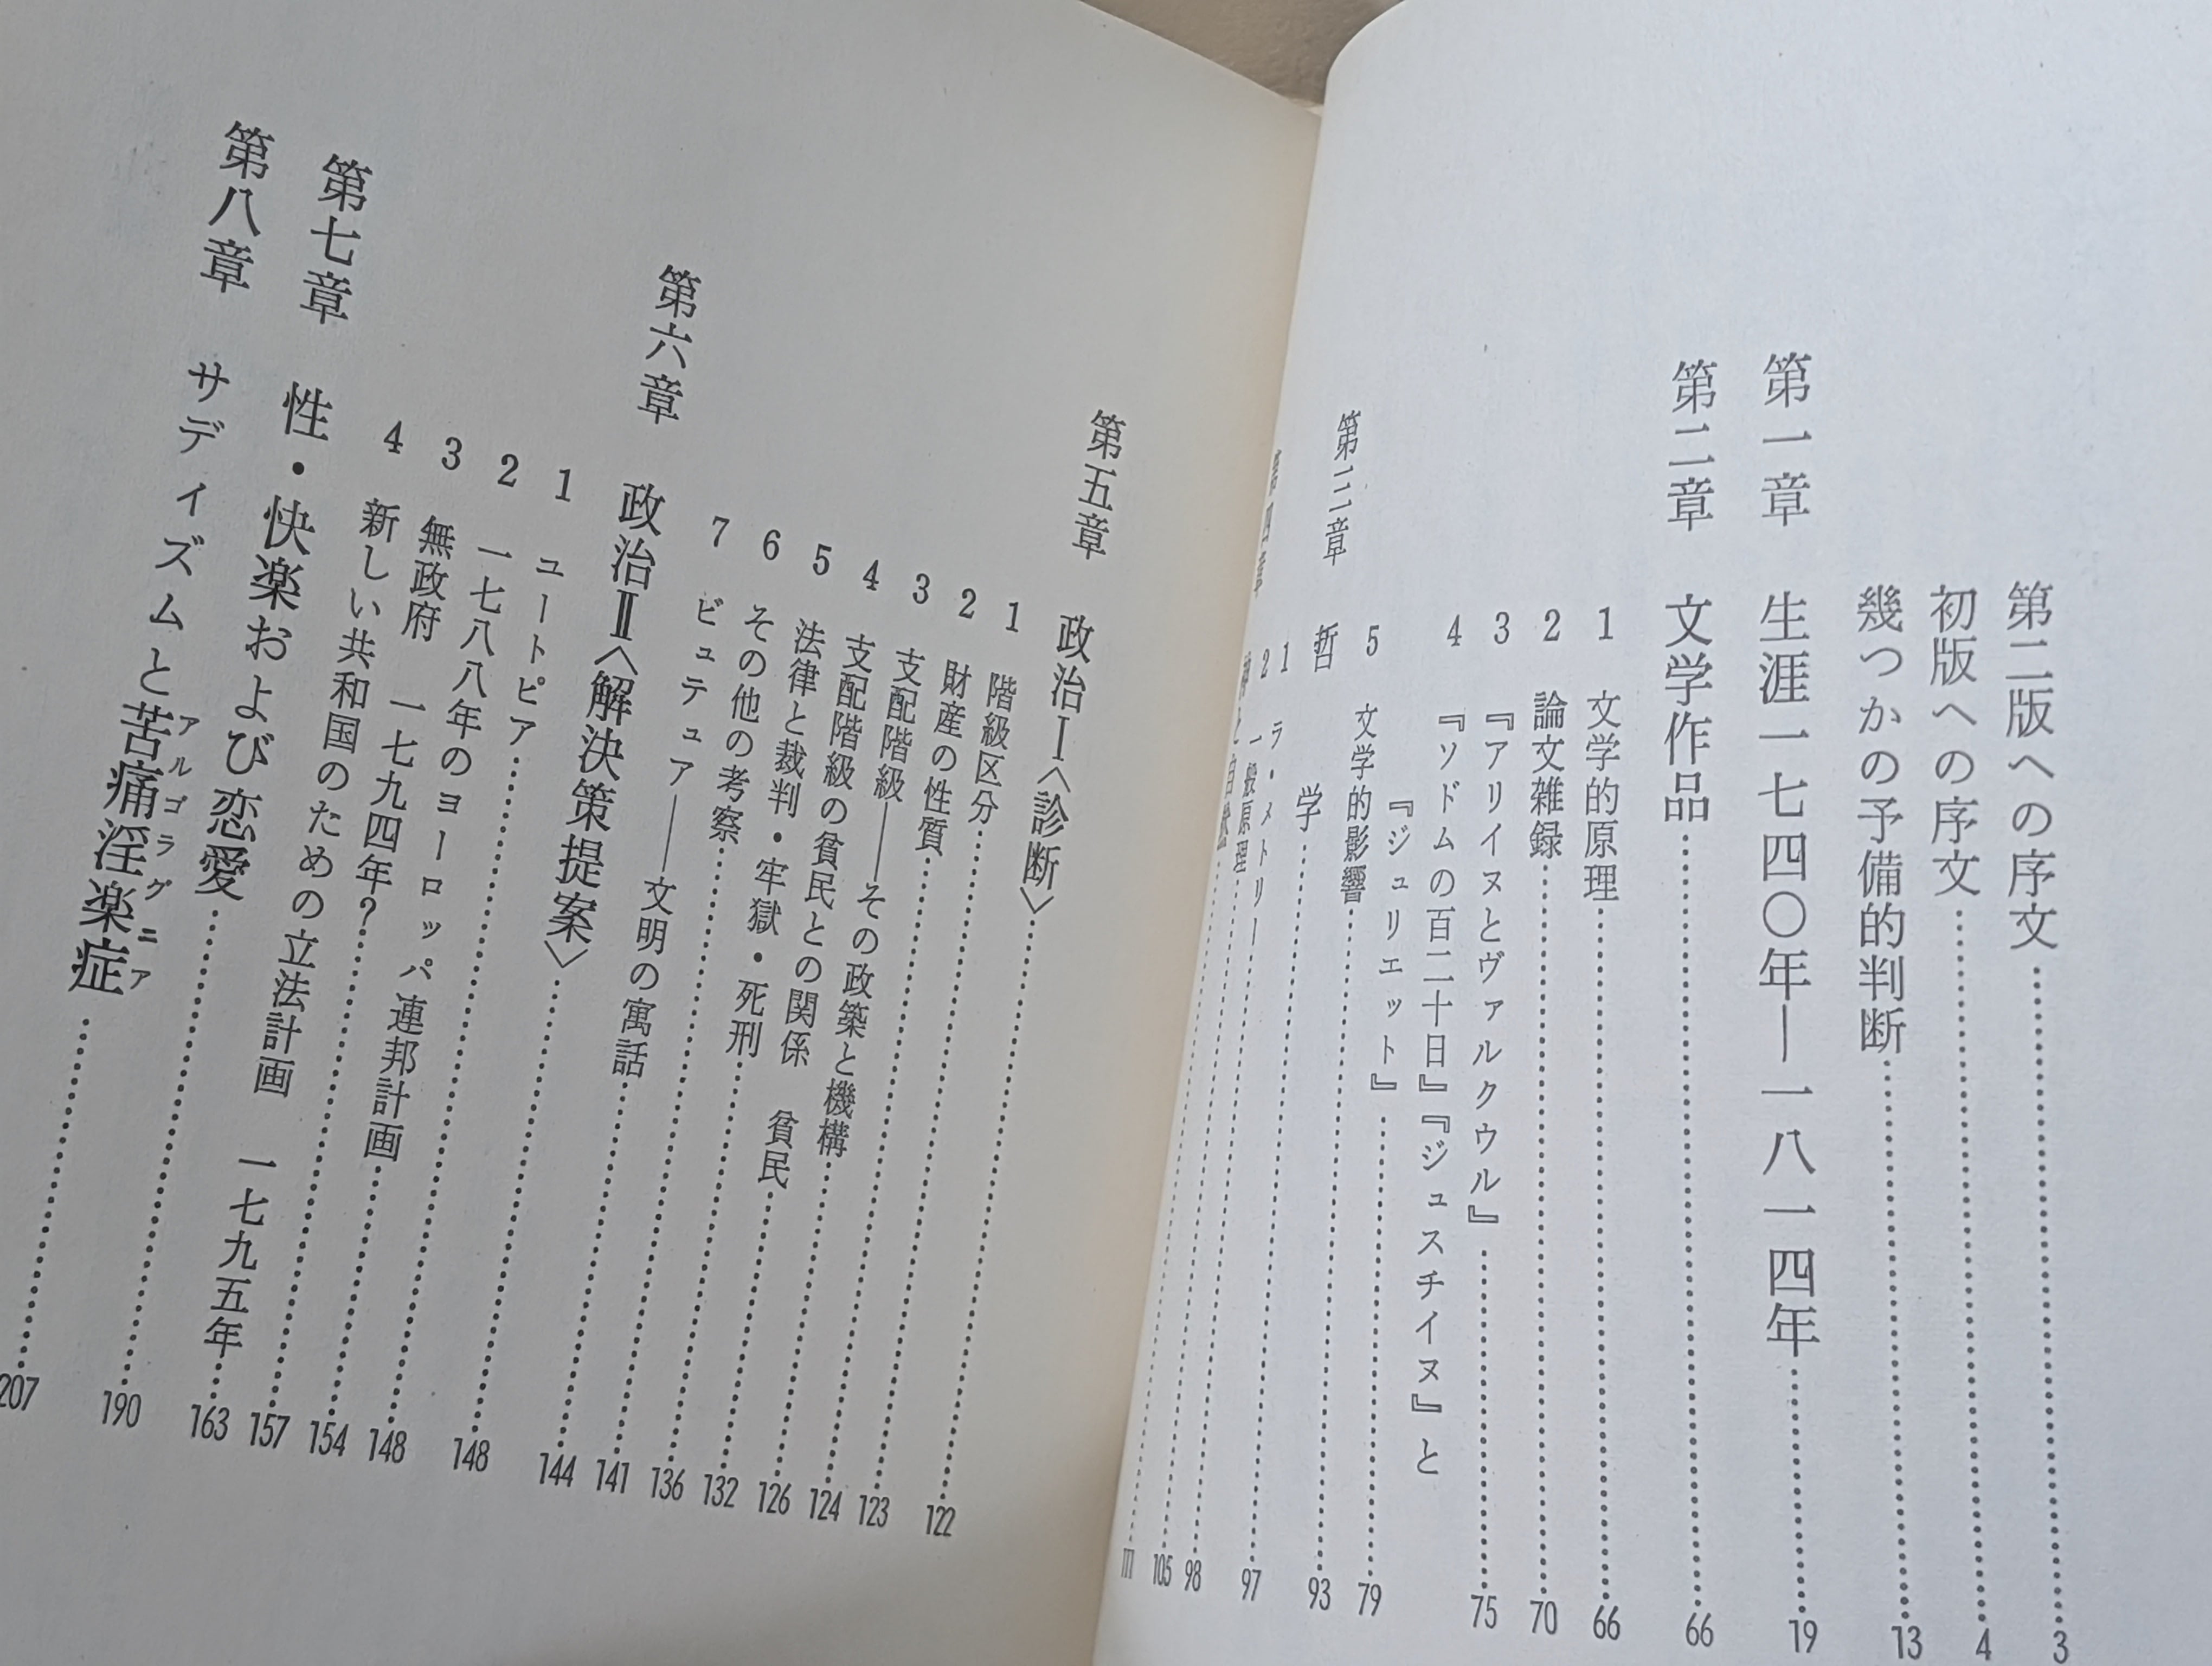 第二版への序文……3
初版への序文……4
幾つかの予備的判断……13
第一章 生涯一七四〇年―一八一四年……19
第二章 文学作品……66
1 文学的原理……66
2 論文雑録……70
3 『アリイヌとヴァルクウル』……75
4 『ソドムの百二十日』『ジュスチイヌ』と
『ジュリエット』……79
5 文学的影響……93
第三章 哲学……97
1 ラ・メトリー……98
2 一般原理……105
第四章 神と自然……111
第五章 政治Ⅰ〈診断〉……122
1 階級区分……123
2 財産の性質……124
3 支配階級――その政築と機構……126
4 支配階級の貧民との関係 貧民……132
5 法律と裁判・牢獄・死刑……136
6 その他の考察……141
7 ビュテュア――文明の寓話……144
第六章 政治Ⅱ〈解決策提案〉……148
1 ユートピア……148
2 一七八八年のヨーロッパ連邦計画……154
3 無政府 一七九四年?……157
4 新しい共和国のための立法計画 一七九五年……163
第七章 性・快楽および恋愛……190
第八章 サディズムと苦痛淫楽症アルゴラグニア……207